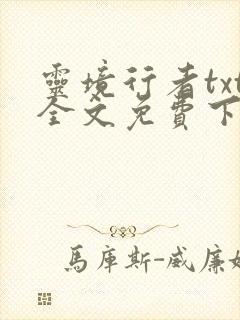 靈境行者txt
全文免費下
馬庫斯-威廉姆